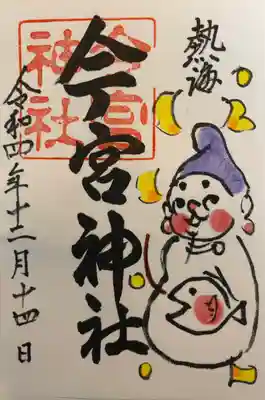 熱海
今宮神社
今宮
神社
令和四年十二月十四日